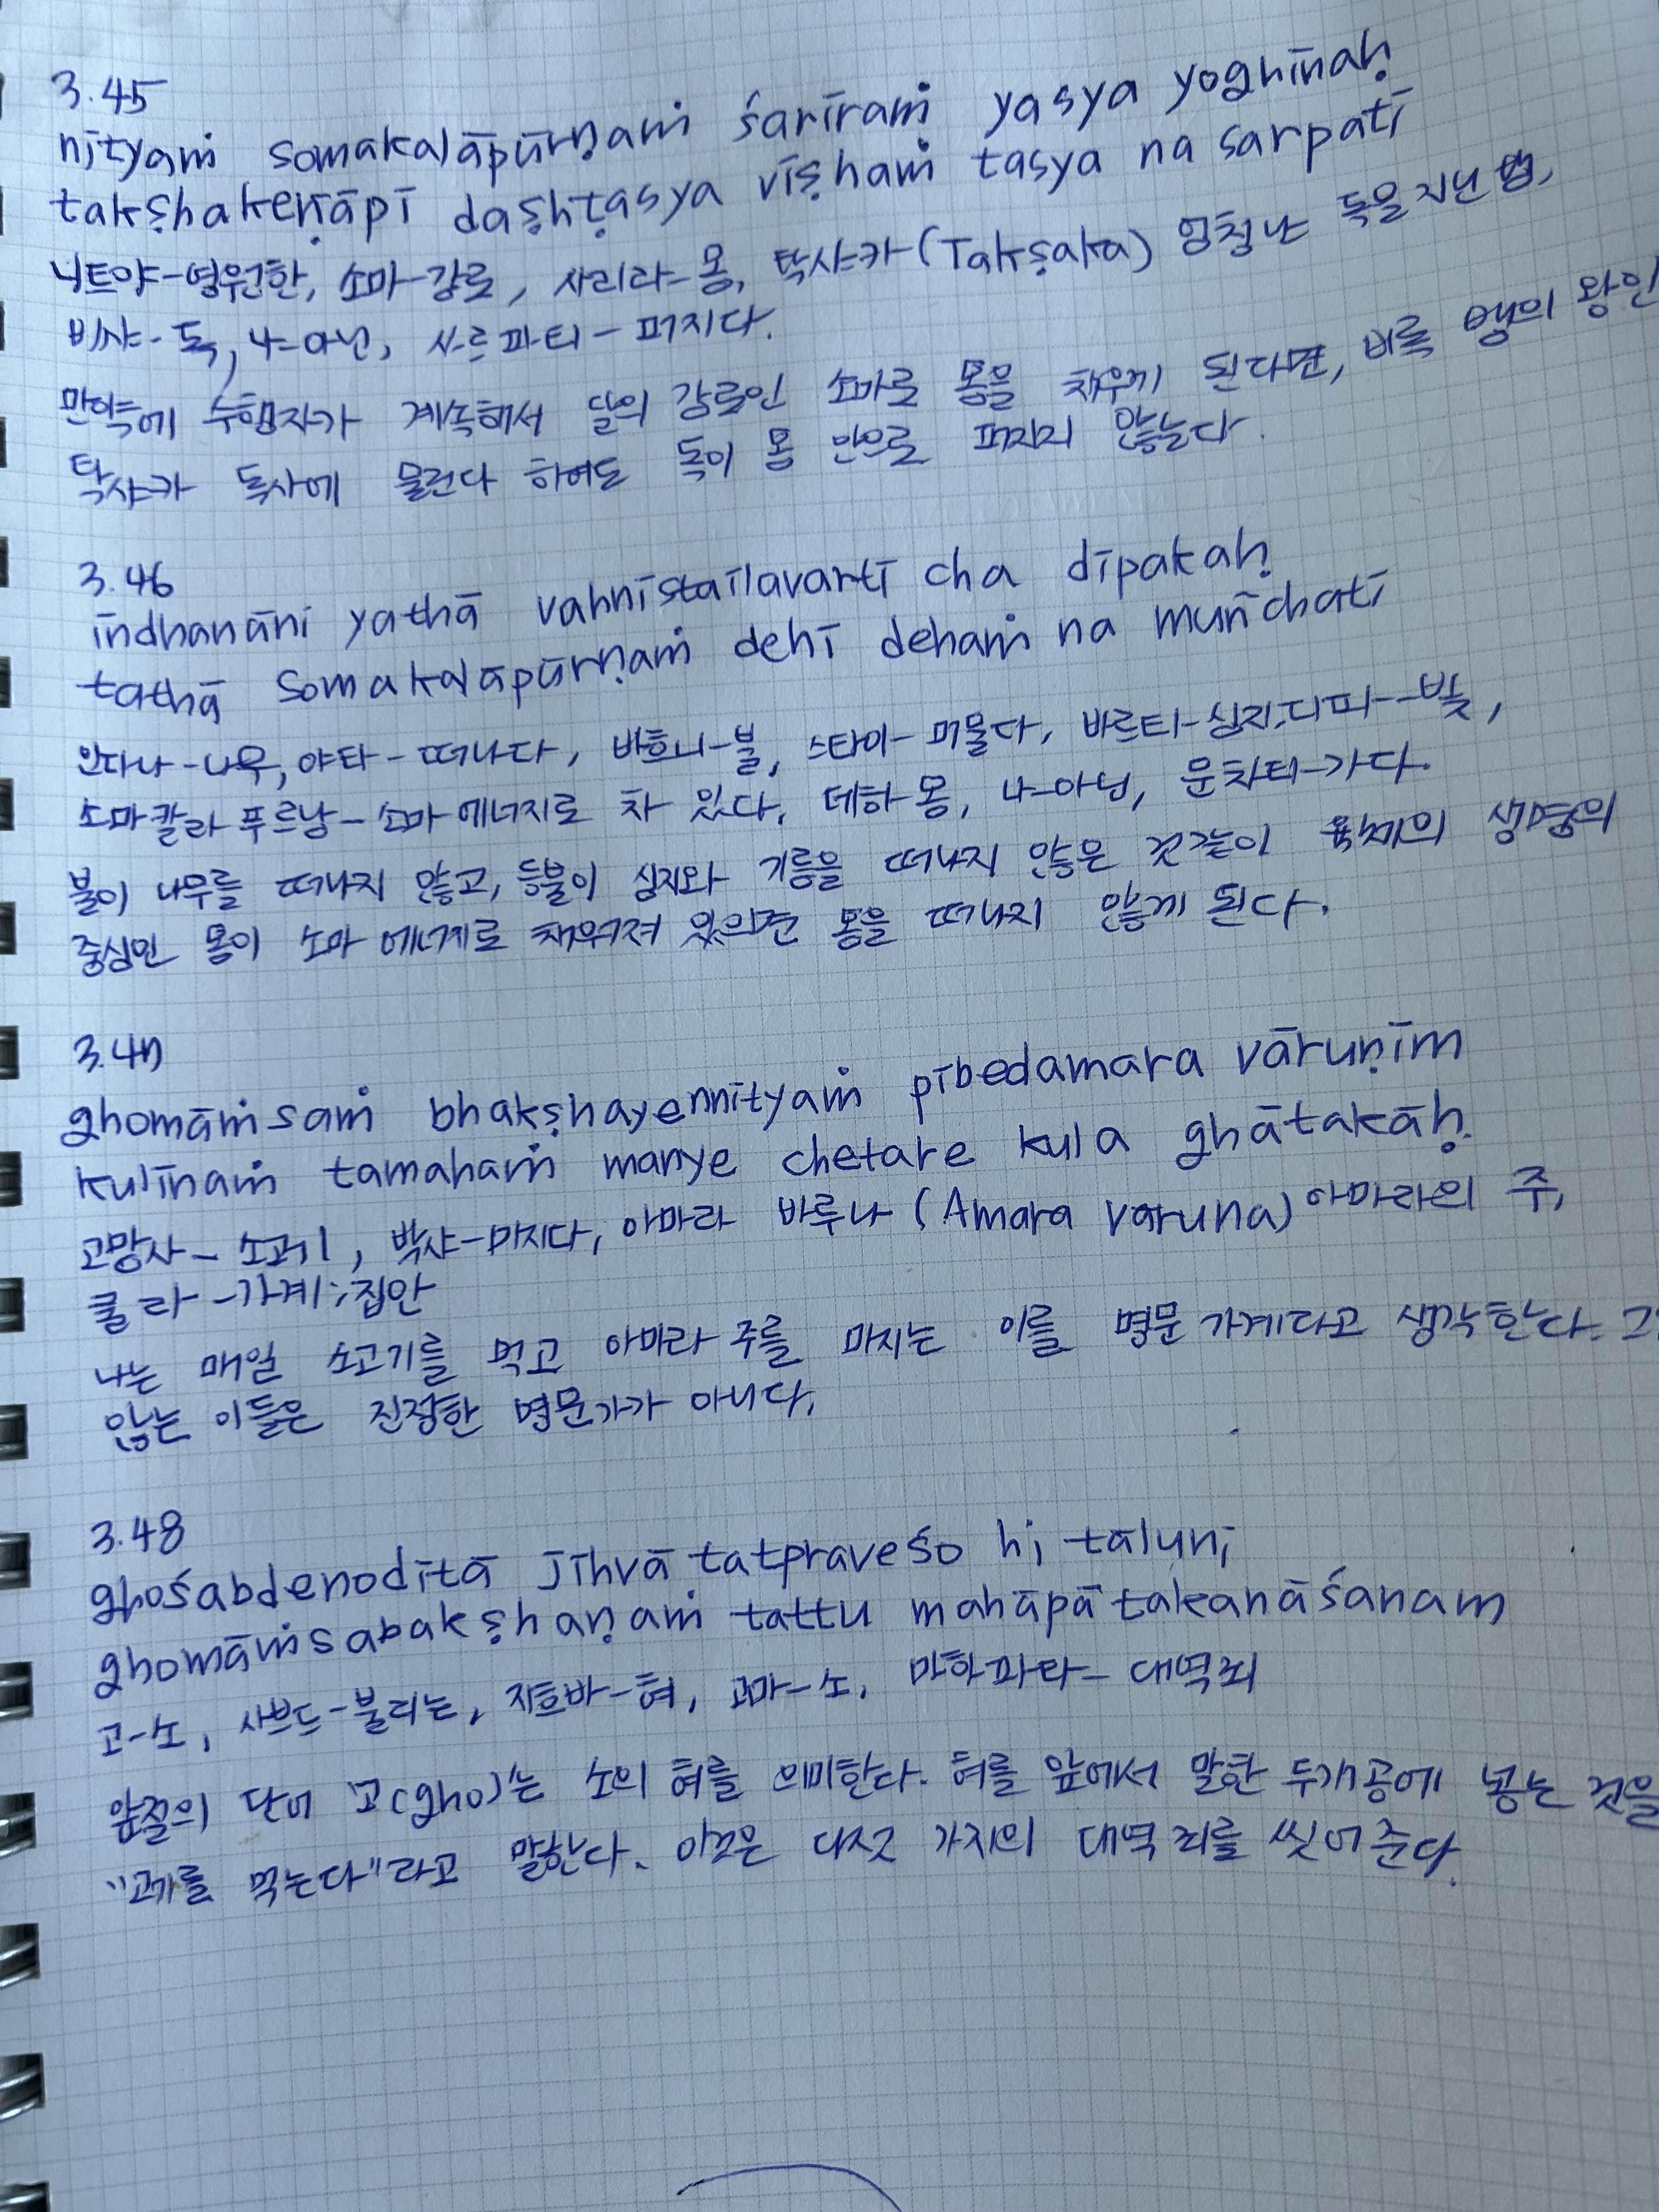 3.45
nītyaṁ somakalāpūrṇaṁ śarīraṁ yasya yoghīnaḥ
takṣhakeṇāpī daṣhṭasya vīṣhaṁ tasya na sarpatī
니트야-영원한, 소마-감로, 사리라-몸, 탁샤카(Takṣaka) 엄청난 독을 지닌 뱀,
비샤-독, 나-아닌, 사르파티-퍼지다.
만약에 수행자가 계속해서 달의 감로인 소마로 몸을 채우게 된다면, 비록 뱀의 왕인
탁샤카 독사에 물린다 하여도 독이 몸 안으로 퍼지지 않는다.
3.46
īndhanāni yathā vahnīstaīlavartī cha dīpakaḥ
tathā somakalāpūrṇaṁ dehī dehaṁ na muñchatī
인다나-나무, 야타-떠나다, 바흐니-불, 스타이-머물다, 바르티-심지, 디피--빛,
소마칼라 푸르남-소마 에너지로 차 있다, 데하-몸, 나-아닌, 문차티-가다.
불이 나무를 떠나지 않고, 등불이 심지와 기름을 떠나지 않은 것같이 육체의 생명의
중심인 몸이 소마 에너제로 채워져 있으면 몸을 떠나지 않게 된다.
3.47
ghomāṁsaṁ bhakṣhayennītyaṁ pībedamara vāruṇīm
kulīnaṁ tamahaṁ manye chetare kula ghātakāḥ.
고망사-소고기, 박샤-마시다, 아마라 바루나 (Amara varuna) 아마라의 주,
쿨라-가계;집안
나는 매일 소고기를 먹고 아마라 주를 마시는 이를 명문 가계라고 생각한다. 그
않는 이들은 진정한 명문가가 아니다.
3.48
ghośabdenodītā jīhvā tatpraveśo hi tāluni
ghomāṁsabakṣhaṇaṁ tattu mahāpātakanāśanam
고-소, 사브드-불리는, 지흐바-혀, 고마-소, 마하파타-대역죄
앞절의 단어 고(gho)는 소의 혀를 의미한다. 혀를 앞에서 말한 두개공에 넣는 것을
"고기를 먹는다"라고 말한다. 이것은 다섯 가지의 대역 죄를 씻어 준다.